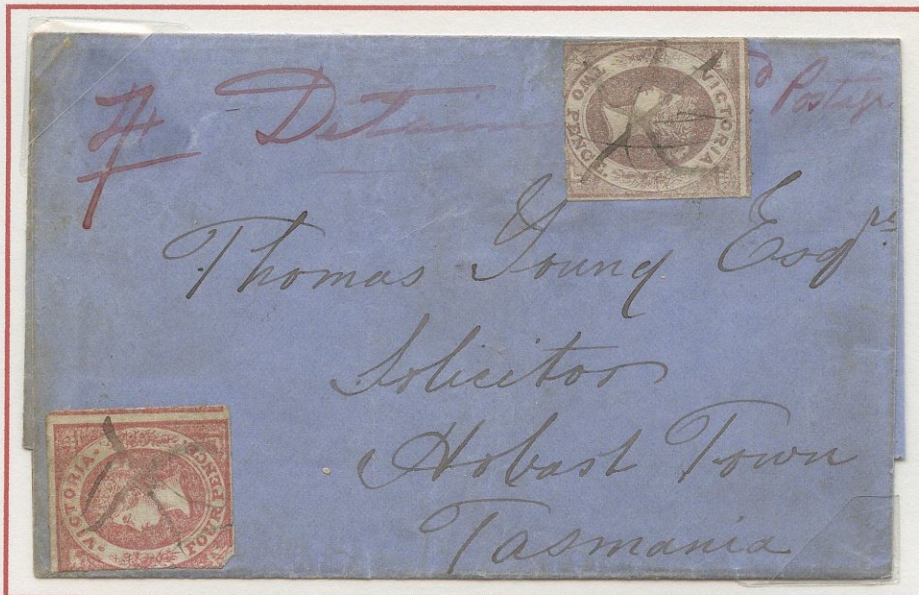 Detain d Postage
VICTORIA
TWO PENCE
Thomas Young Esqre
Solicitor
Hobart Town
Tasmania
VICTORIA
FOUR PENCE